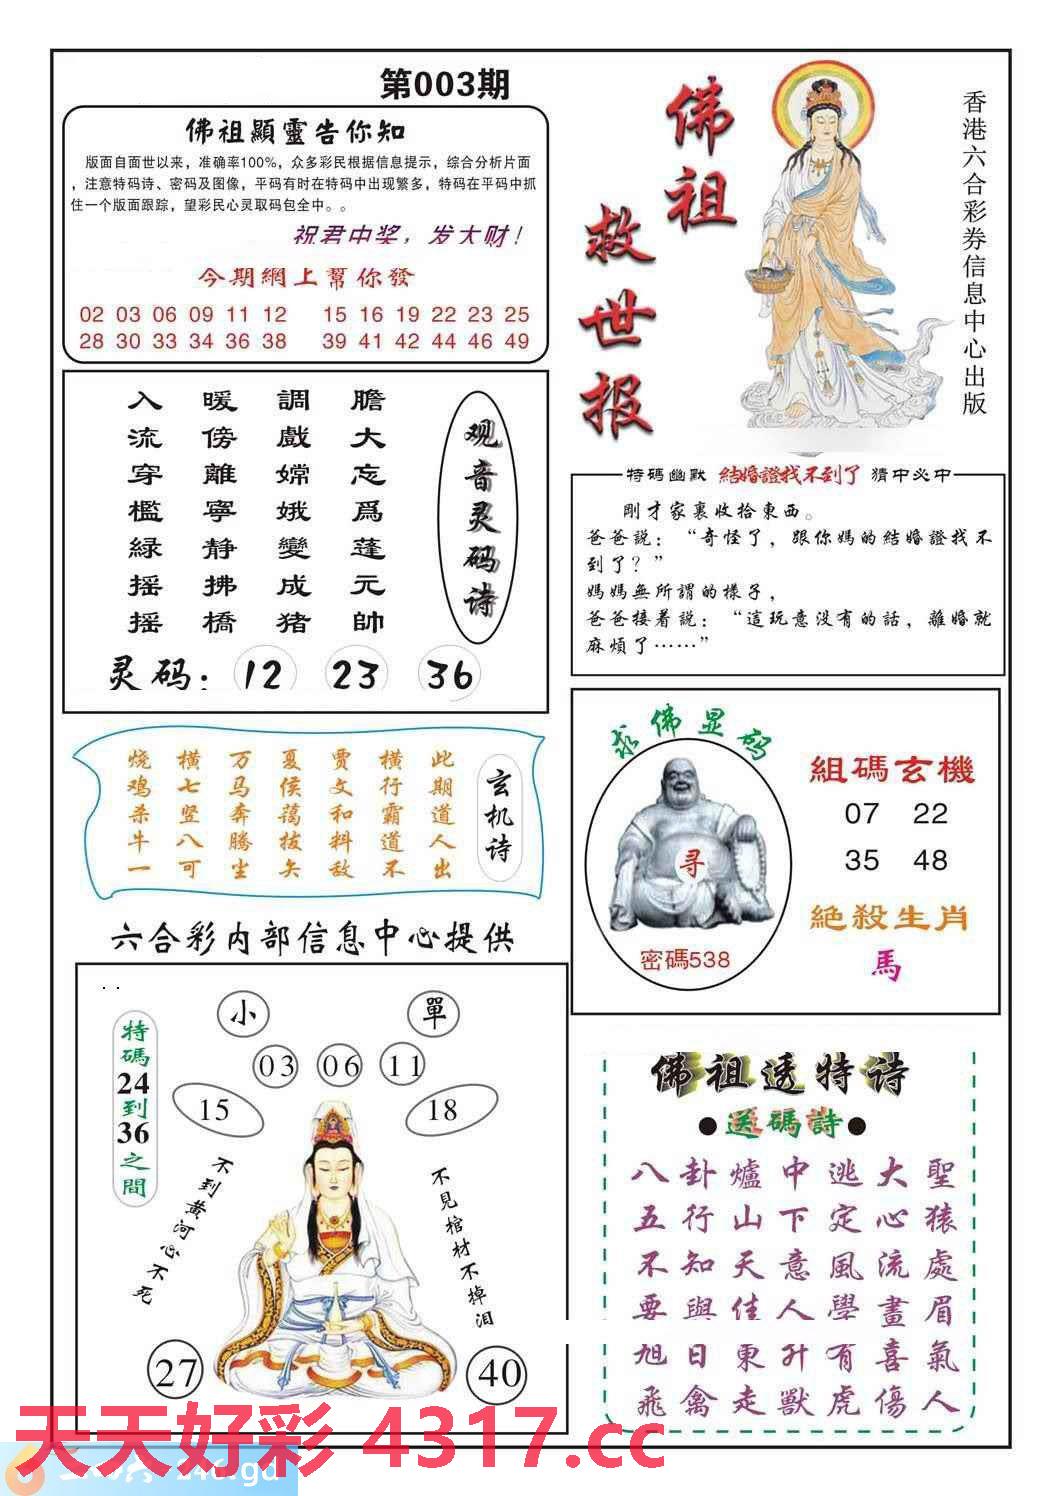 第003期
佛祖顯靈告你知
版面自面世以来，准确率100%，众多彩民根据信息提示，综合分析片面
，注意特码诗、密码及图像，平码有时在特码中出现繁多，特码在平码中抓
住一个版面跟踪，望彩民心灵取码包全中。。
祝君中奖，发大财！
今期網上幫你發
02 03 06 09 11 12 15 16 19 22 23 25
28 30 33 34 36 38 39 41 42 44 46 49
佛祖
救世报
香港六合彩券信息中心出版
膽大忘爲蓬元帥
調戲嫦娥變成猪
暖傍離寧静拂橋
入流穿檻緑摇摇
观音灵码诗
灵码：12 23 36
特码幽默 結婚證找不到了 猜中必中
剛才家裏收拾東西。
爸爸説：“奇怪了，跟你媽的結婚證找不
到了？”
媽媽無所謂的樣子，
爸爸接着説：“這玩意没有的話，離婚就
麻煩了……”
玄机诗
此期道人出
横行霸道不
贾文和料敌
夏侯蔼拔矢
万马奔腾坐
横七竖八可
烧鸡杀牛一
求佛显码
寻
密碼538
組碼玄機
07 22
35 48
絶殺生肖
馬
六合彩内部信息中心提供
特碼24到36之間
小
單
03 06 11
15
18
不到黄河心不死
不見棺材不掉泪
27
40
佛祖透特诗
●送碼詩●
八卦爐中逃大聖
五行山下定心猿
不知天意風流處
要與佳人學畫眉
旭日東升有喜氣
飛禽走獸虎傷人
天天好彩 4317.cc
246.gd